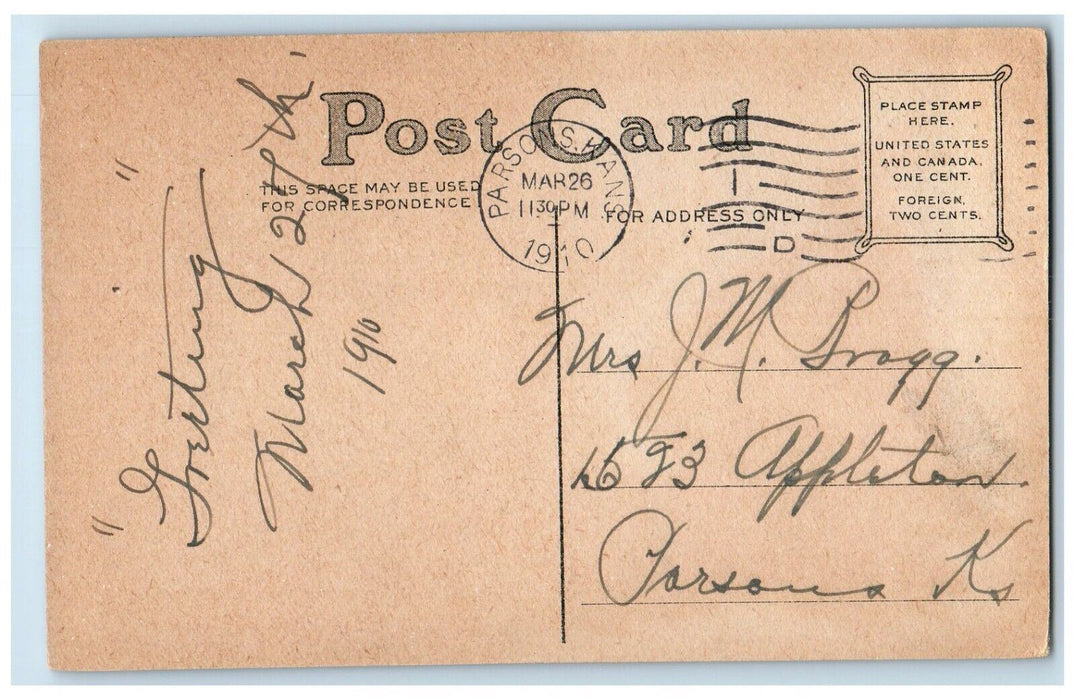 Post Card
THIS SPACE MAY BE USED
FOR CORRESPONDENCE
FOR ADDRESS ONLY
PLACE STAMP
HERE.
UNITED STATES
AND CANADA,
ONE CENT.
FOREIGN,
TWO CENTS.
PARSONS, KANS
MAR 26
11 30 PM
1910
1
D
"Greeting"
March 27th.
1910
Mrs J. M.
Appleton.
Parsons Ks